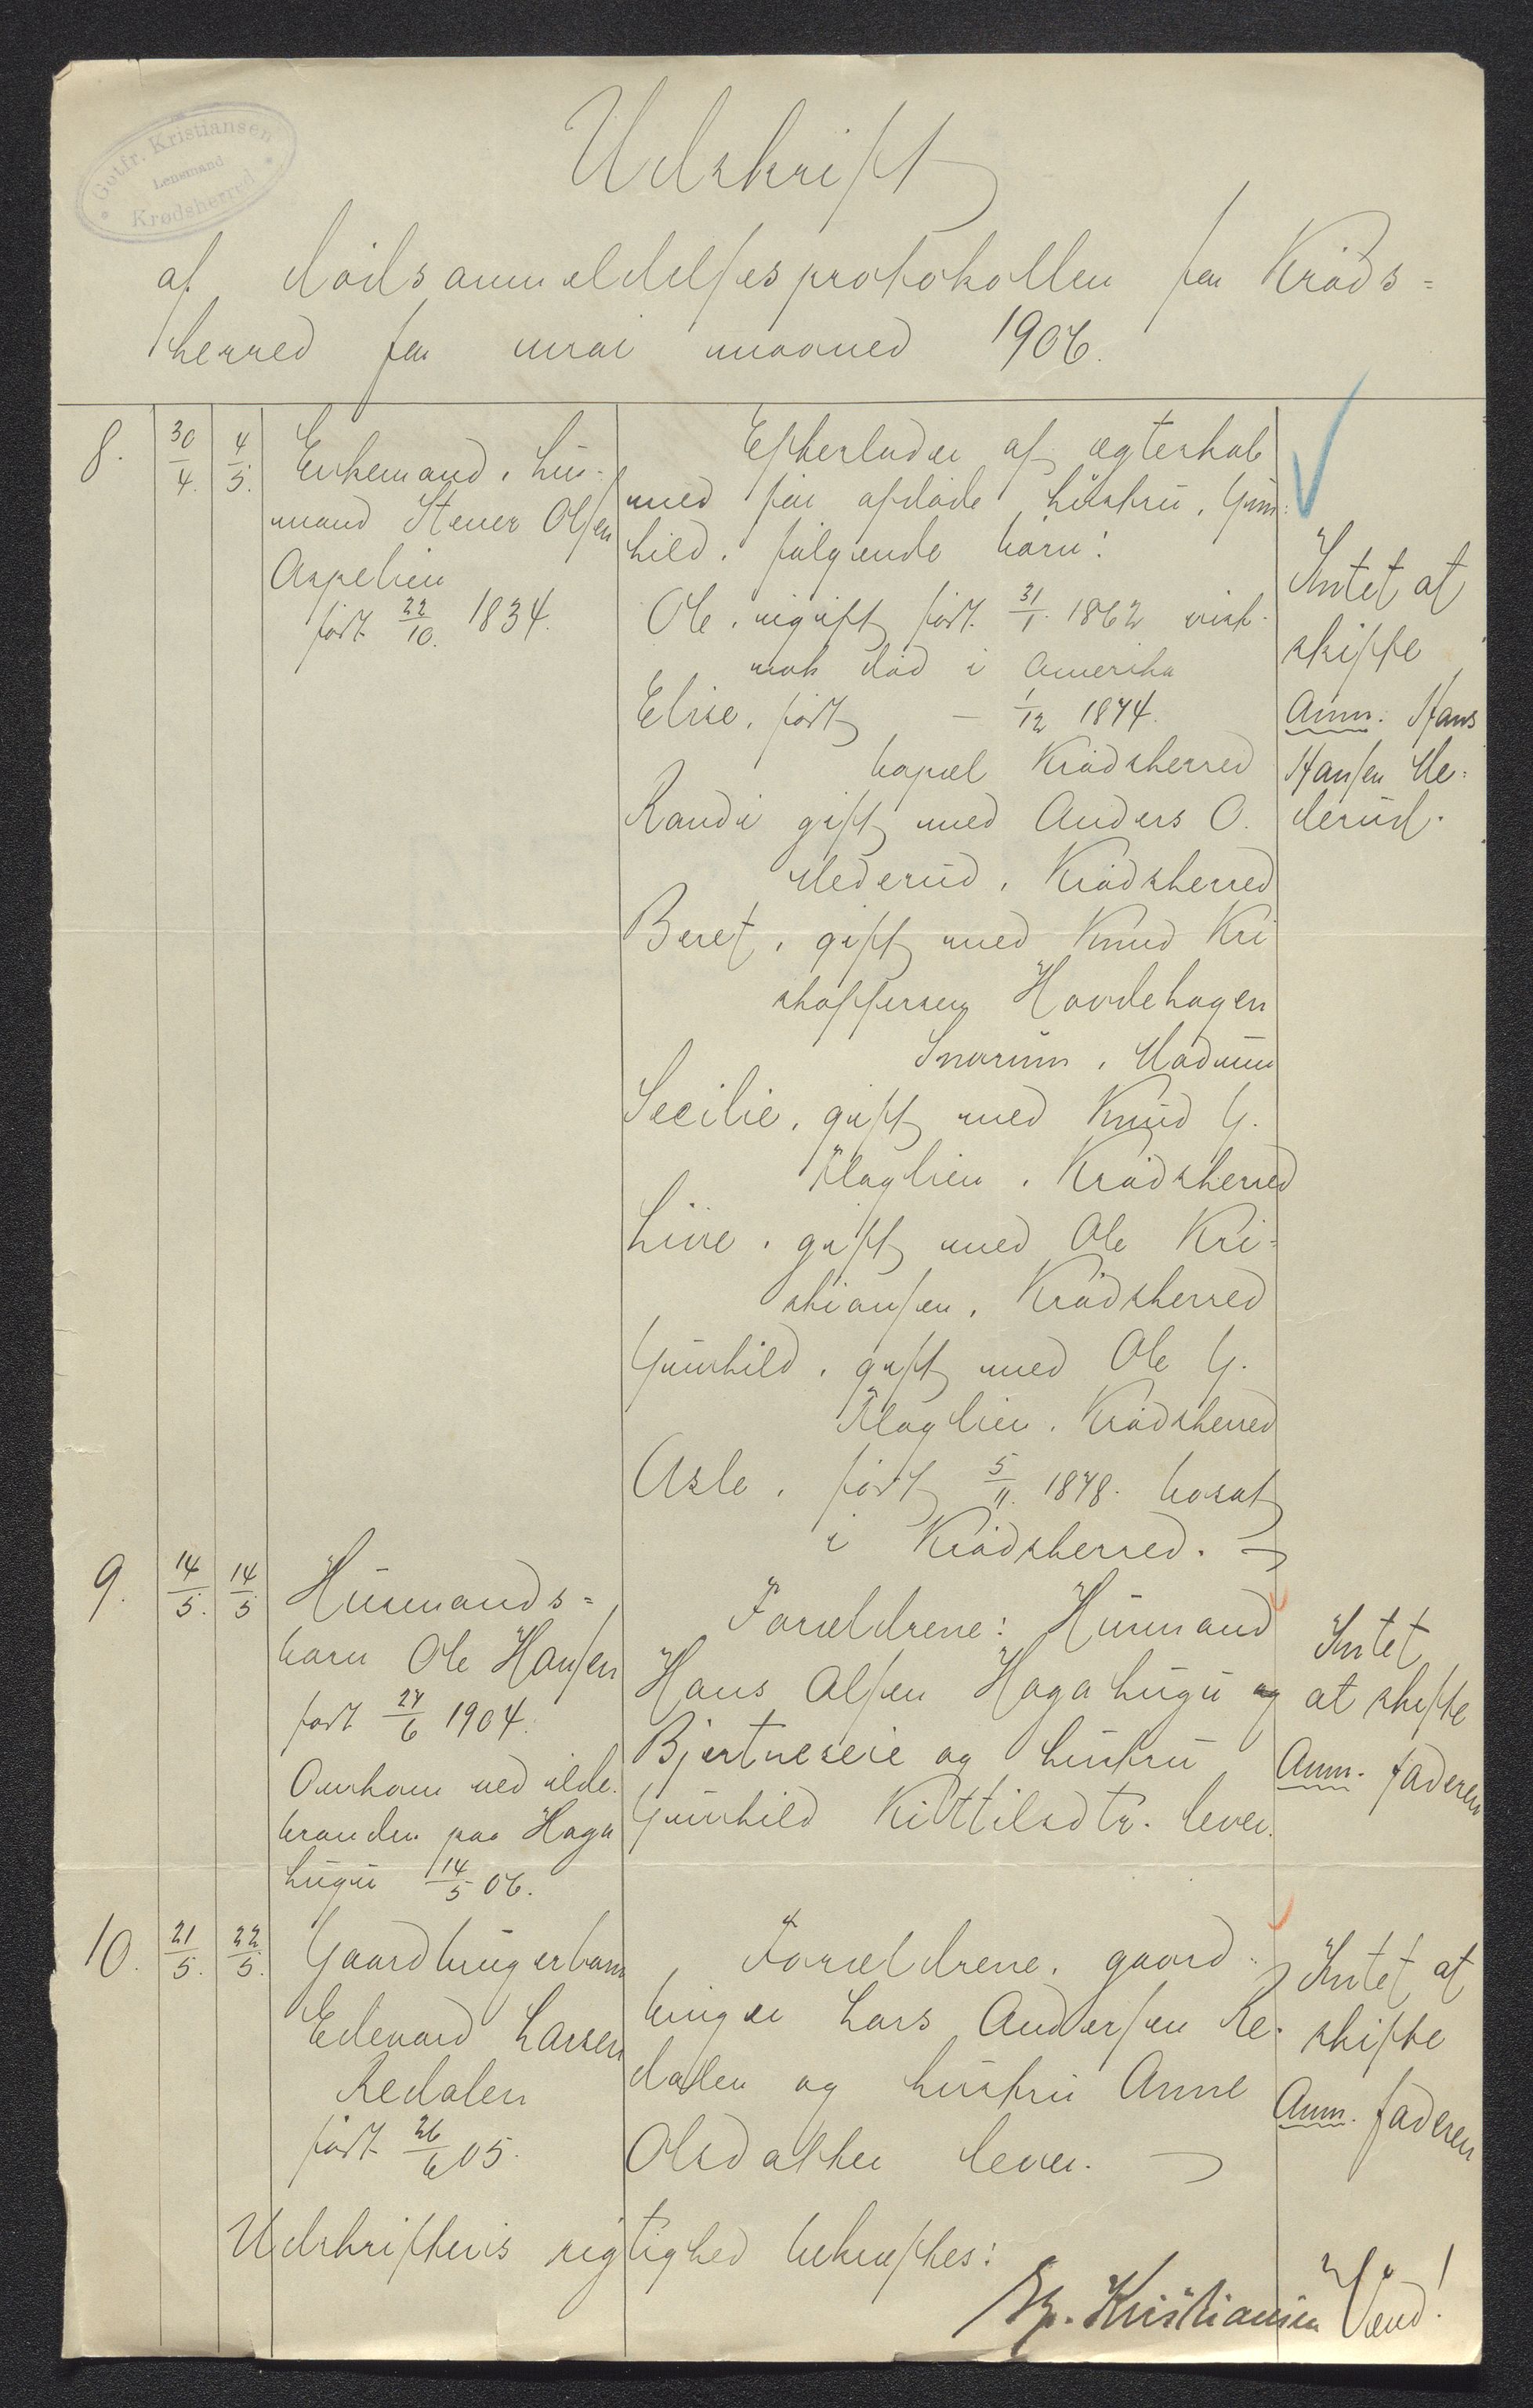 Gotfr. Kristiansen
Lensmand
Krødsherred
Udskrift
af dødsanmeldelsesprotokollen for Krøds=
herred for mai maaned 1906.
8.
30/4.
4/5.
Enkemand, hus-
mand Stener Olsen
Aspelien
født 22/10. 1834.
Efterlader af ægteskab
med før afdøde hustru, Gun-
hild, følgende børn:
Ole, ugift, født 31/1. 1862 vist-
nok død i Amerika
Elise, født – 1/12 1874.
bopæl Krødsherred
Randi gift med Anders O.
Mederud, Krødsherred
Beret, gift med Knud Kri
stoffersen Hovdehagen
Snarum, Modum
Secilie, gift med Knud G.
Slaglien, Krødsherred
Live, gift med Ole Kri-
stiansen, Krødsherred
Gunhild, gift med Ole G.
Slaglien, Krødsherred
Asle, født 5/11. 1878. bosat
i Krødsherred.
Intet at
skifte
Anm. Hans
Hansen Me-
derud.
9.
14/5.
14/5
Husmands=
barn Ole Hansen
født 27/6 1904.
Omkom ved ilde-
branden paa Haga
hugu 14/5 06.
Forældrene: Husmand
Hans Olsen Hagahugu og
Bjertneseie og hustru
Gunhild Kittilsdtr. lever.
Intet
at skifte
Anm. faderen
10.
21/5.
22/5.
Gaardbrugerbarn
Edevard Larsen
Redalen
født 26/6 05.
Forældrene, gaard-
bruger Lars Andersen Re-
dalen og hustru Anne
Olsdatter lever.
Intet at
skifte
Anm. faderen
Udskriftens rigtighed bekræftes:
Kristiansen
Vend!